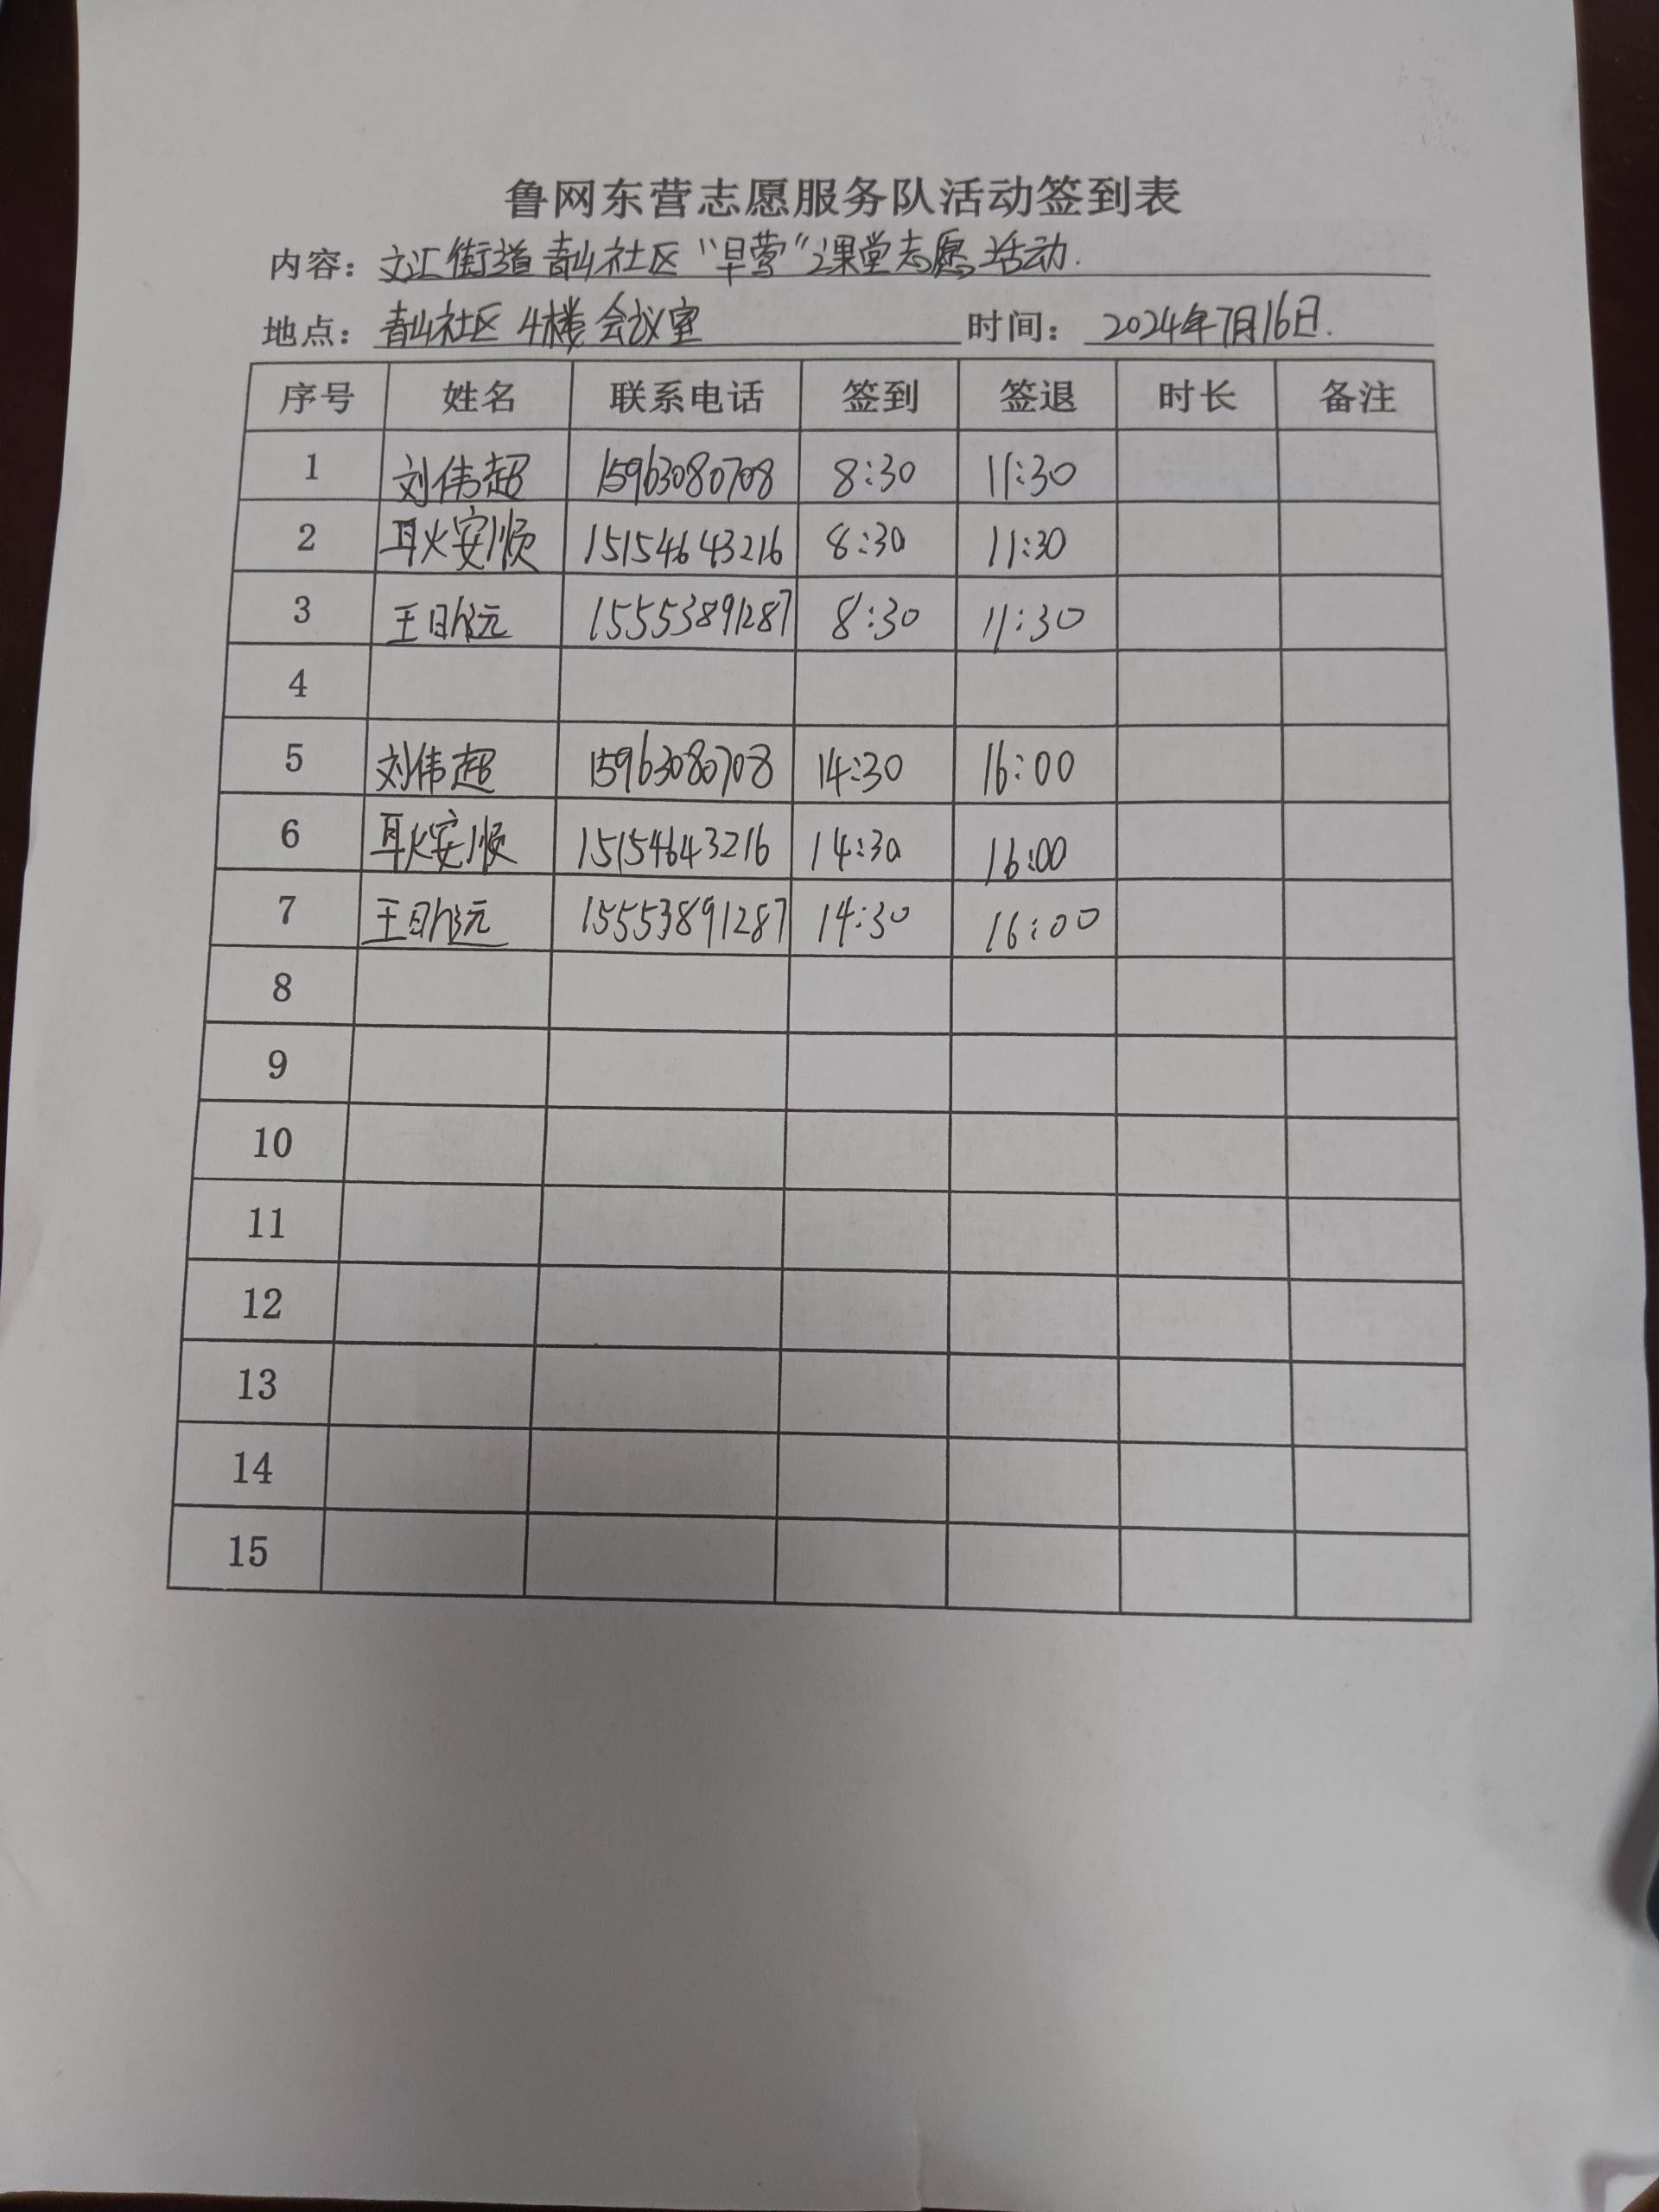 鲁网东营志愿服务队活动签到表
内容：文汇街道青山社区“早营”课堂志愿活动.
地点：青山社区4楼会议室 时间：2024年7月16日.
序号 姓名 联系电话 签到 签退 时长 备注
1 刘伟超 15963080708 8:30 11:30
2 耿安顺 15154643216 8:30 11:30
3 王 元 15553891287 8:30 11:30
4
5 刘伟超 15963080708 14:30 16:00
6 耿安顺 15154643216 14:30 16:00
7 王 元 15553891287 14:30 16:00
8
9
10
11
12
13
14
15